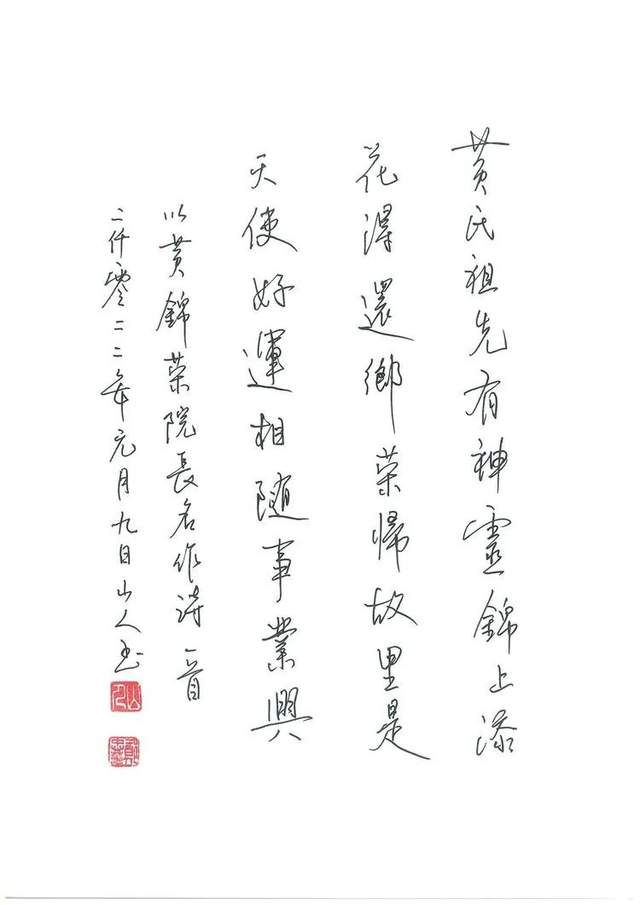 黄氏祖先有神靈錦上添
花得還鄉荣歸故里是
天使好運相隨事業興
以黄錦荣院長名作詩一首
二仟零二二年元月九日山人
山人